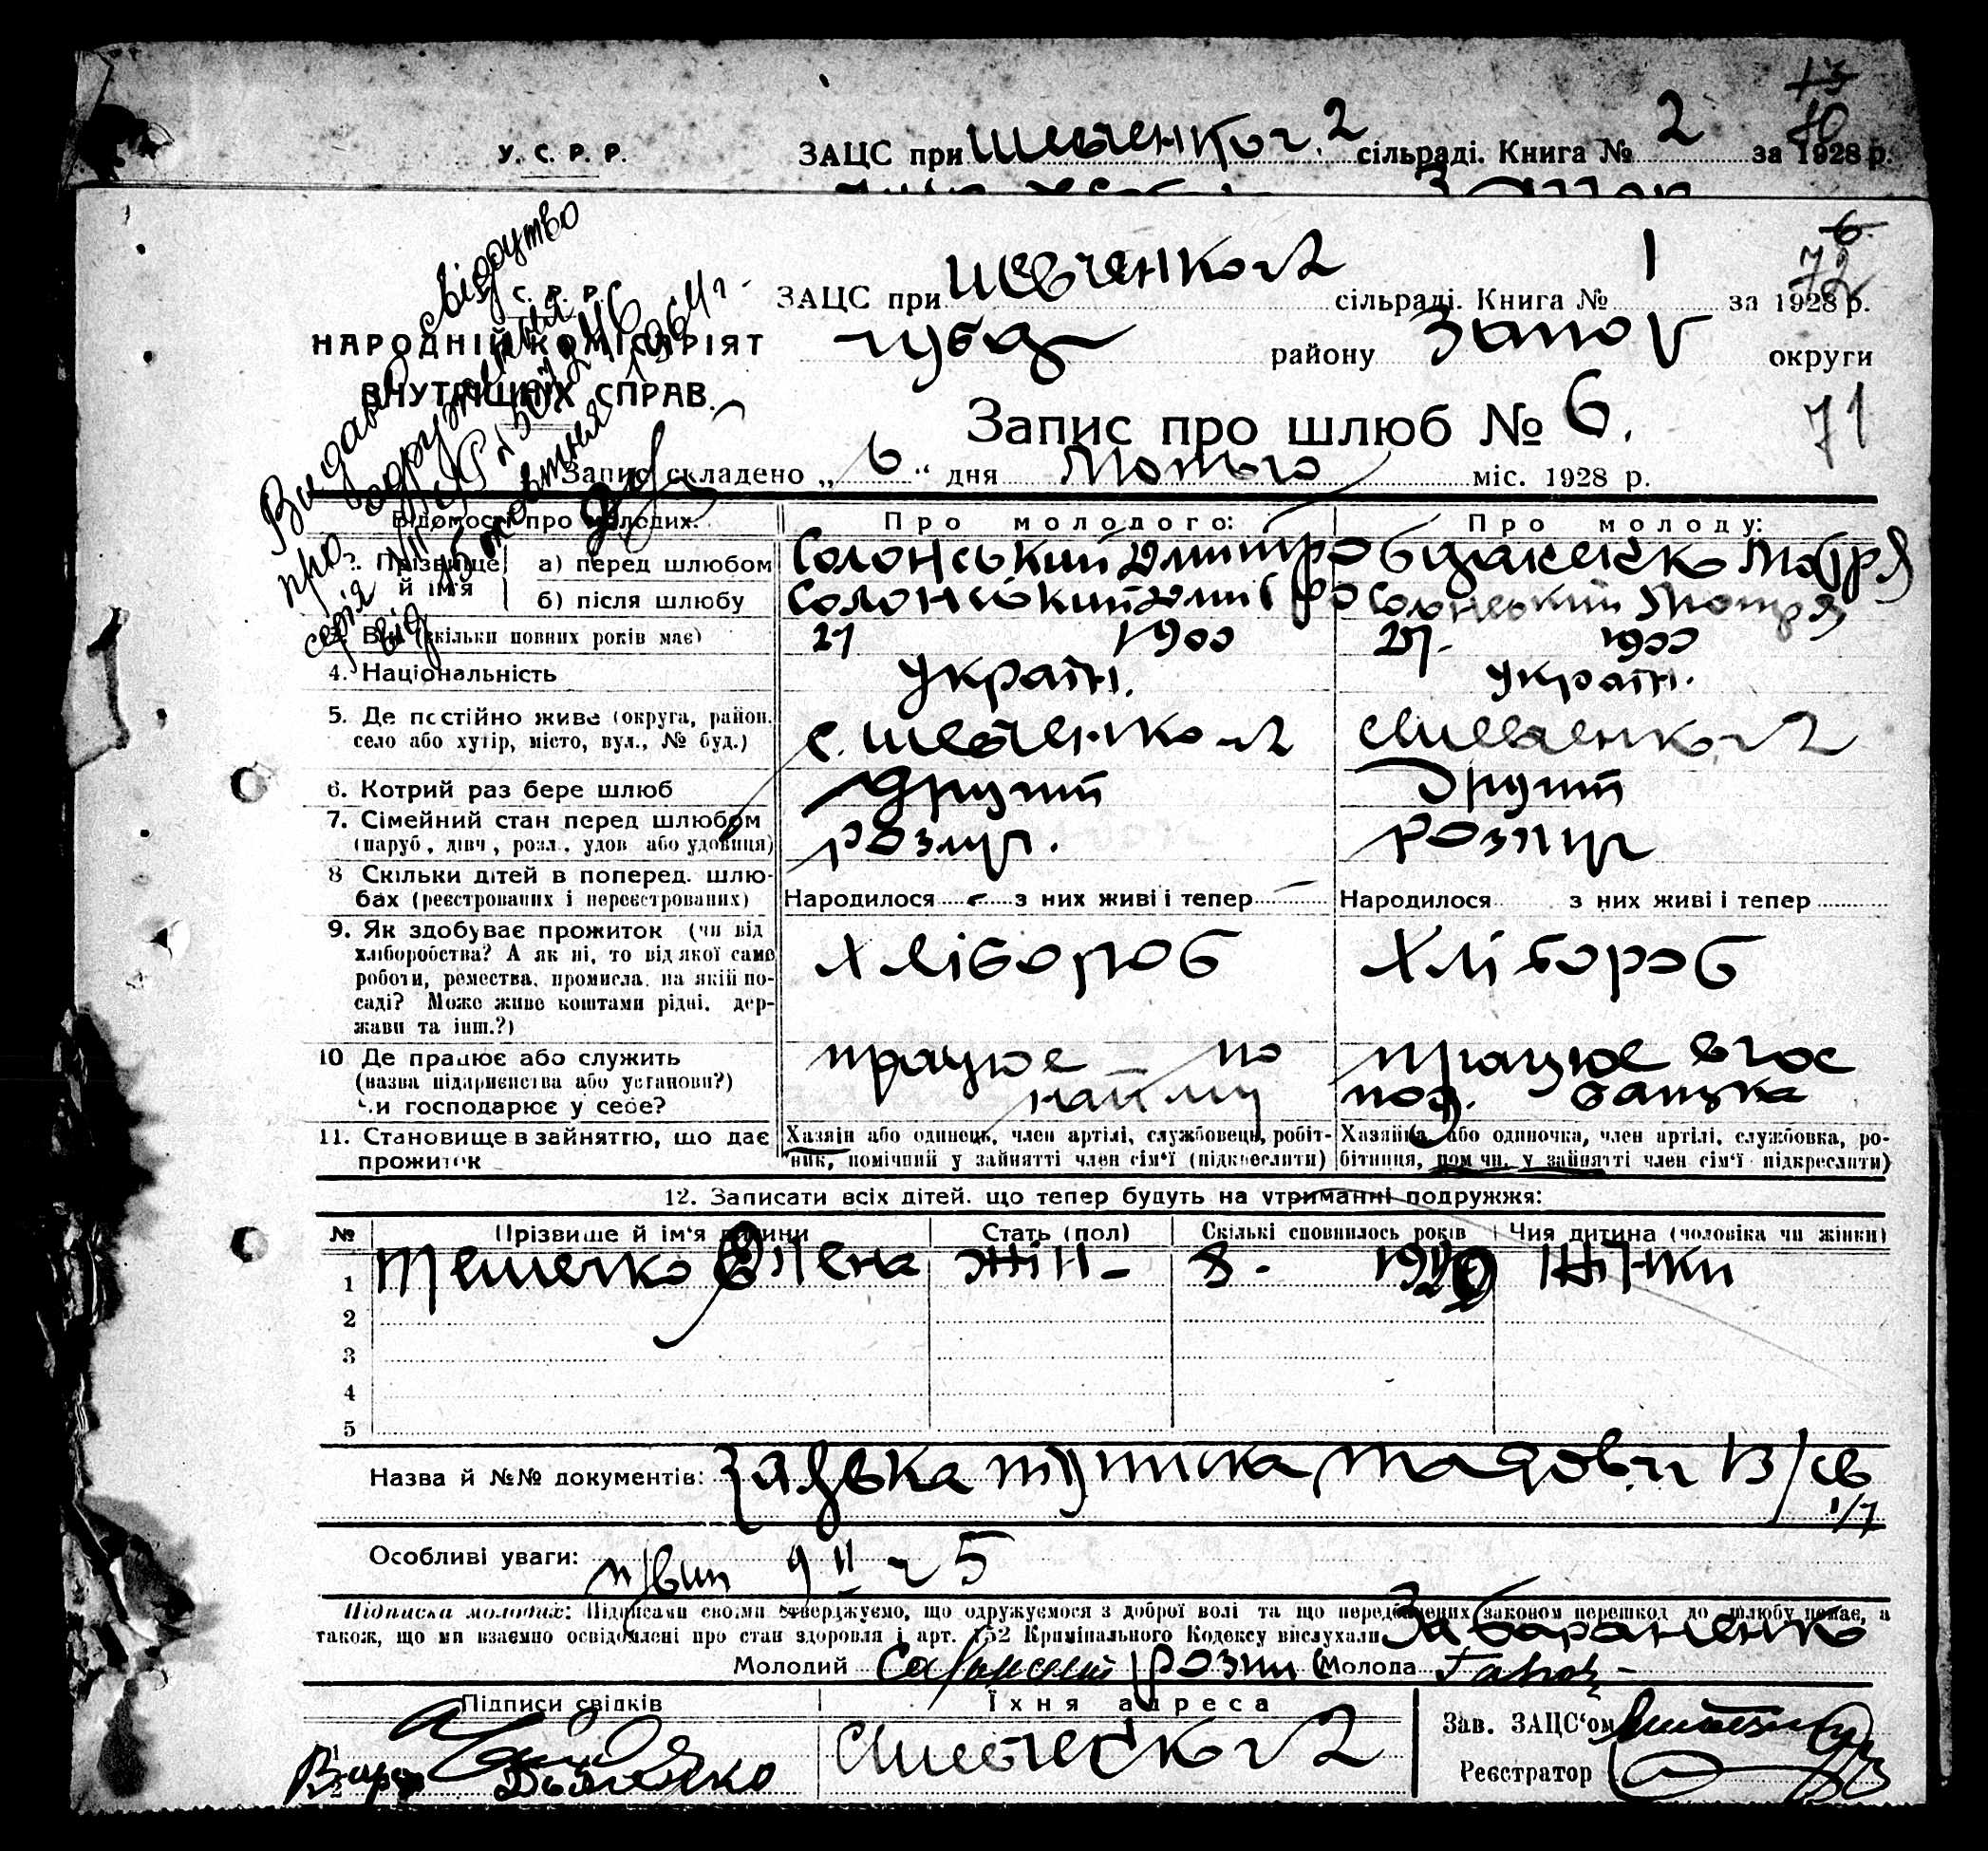 У. С. Р. Р. ЗАЦС при Шевченков. 2 сільраді. Книга № 2 за 1928 р.
73
70
Видано свідоцтво
про одруження
серія
від жовтня 1964 г.
С. Р. Р.
НАРОДНІЙ КОМІСАРІЯТ
ВНУТРІШНІХ СПРАВ.
ЗАЦС при Шевченков 2 сільраді. Книга № 1 за 1928 р.
6
72
району Запор округи
Запис про шлюб № 6.
71
Запис складено „ 6 “ дня Лютого міс. 1928 р.
Відомості про молодих. Про молодого: Про молоду:
Прізвище й ім'я
а) перед шлюбом Солонський Дмитро Мотря
б) після шлюбу Солонський Дмитро Солонський Мотря
3. Вік (скільки повних років має) 27 1900 27. 1900
4. Національність Україн. Україн.
5. Де постійно живе (округа, район, село або хутір, місто, вул., № буд.) с. Шевченков 2 с. Шевченков 2
6. Котрий раз бере шлюб Другий Другий
7. Сімейний стан перед шлюбом
(паруб., дівч., розл., удов. або удовиця) розлуч. розлуч
8 Скільки дітей в поперед. шлюбах (реєстрованих і нереєстрованих) Народилося – з них живі і тепер – Народилося з них живі і тепер
9. Як здобуває прожиток (чи від
хліборобства? А як ні, то від якої само
роботи, ремества, промисла, на якій посаді? Може живе коштами рідні, держави та інш.?) Хлібороб Хлібороб
10 Де працює або служить
(назва підприємства або установи?)
Чи господарює у себе? працює по найму працює в гос под. батька
11. Становище в зайняттю, що дає
прожиток
Хазяїн або одинець, член артілі, службовець, робітник, помічний у зайнятті член сім'ї (підкреслити)
Хазяйка або одиночка, член артілі, службовка, робітниця, помічн. у зайнятті член сім'ї підкреслити)
12. Записати всіх дітей, що тепер будуть на утриманні подружжя:
№ Прізвище й ім'я дитини Стать (пол) Скількі сповнилось років Чия дитина (чоловіка чи жінки)
1 Олена жін – 8 - жінки
2
3
4
5
Назва й №№ документів: Заявка
Особливі уваги: 9 II 5
Підписка молодих: Підписами своїми стверджуємо, що одружуємося з доброї волі та що передбачених законом перешкод до шлюбу немає, а
також, що ми взаємно освідомлені про стан здоровля і арт. 152 Кримінального Кодексу вислухали За
Молодий Молода
Підписи свідків Їхня адреса Зав. ЗАЦС'ом
1
2
с Шевченков 2
Реєстратор